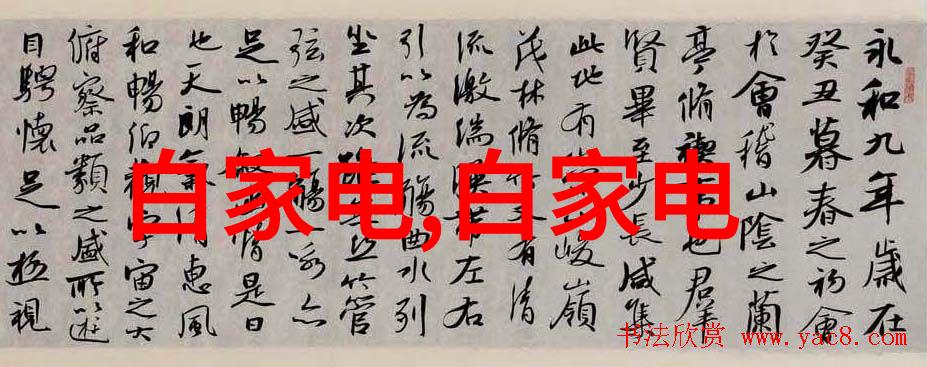 永和九年歲在
癸丑暮春之初會
於會稽山陰之蘭
亭脩禊事也群
賢畢至少長咸集
此地有崇山峻嶺
茂林脩竹又有清
流激湍暎帶左右
引以為流觴曲水列
坐其次雖無絲竹管
弦之盛一觴一詠亦
足以暢敘幽情是日
也天朗氣清惠風
和暢仰觀宇宙之大
俯察品類之盛所以遊
目騁懷足以極視
白家电,白家电
书法欣赏 www.yac8.com